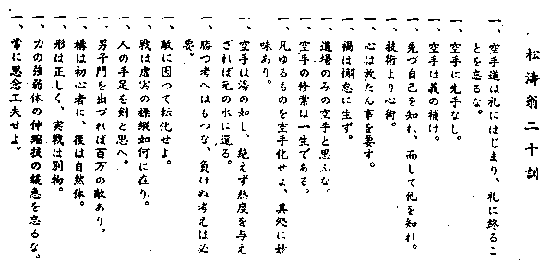 松涛翁二十訓
一、空手道は礼にはじまり、礼に終るこ
とを忘るな。
一、空手に先手なし。
一、空手は義の補け。
一、先づ自己を知れ、而して他を知れ。
一、技術より心術。
一、心は放たん事を要す。
一、禍は懈怠に生ず。
一、道場のみの空手と思ふな。
一、空手の修業は一生である。
一、凡ゆるものを空手化せよ、其処に妙
味あり。
一、空手は湯の如し、絶えず熱度を与え
ざれば元の水に還る。
一、勝つ考へはもつな、負けぬ考えは必
要。
一、敵に因つて転化せよ。
一、戦は虚実の操縦如何に在り。
一、人の手足を剣と思へ。
一、男子門を出づれば百万の敵あり。
一、構は初心者に、後は自然体。
一、形は正しく、実戦は別物。
一、力の強弱体の伸縮技の緩急を忘るな。
一、常に思念工夫せよ。